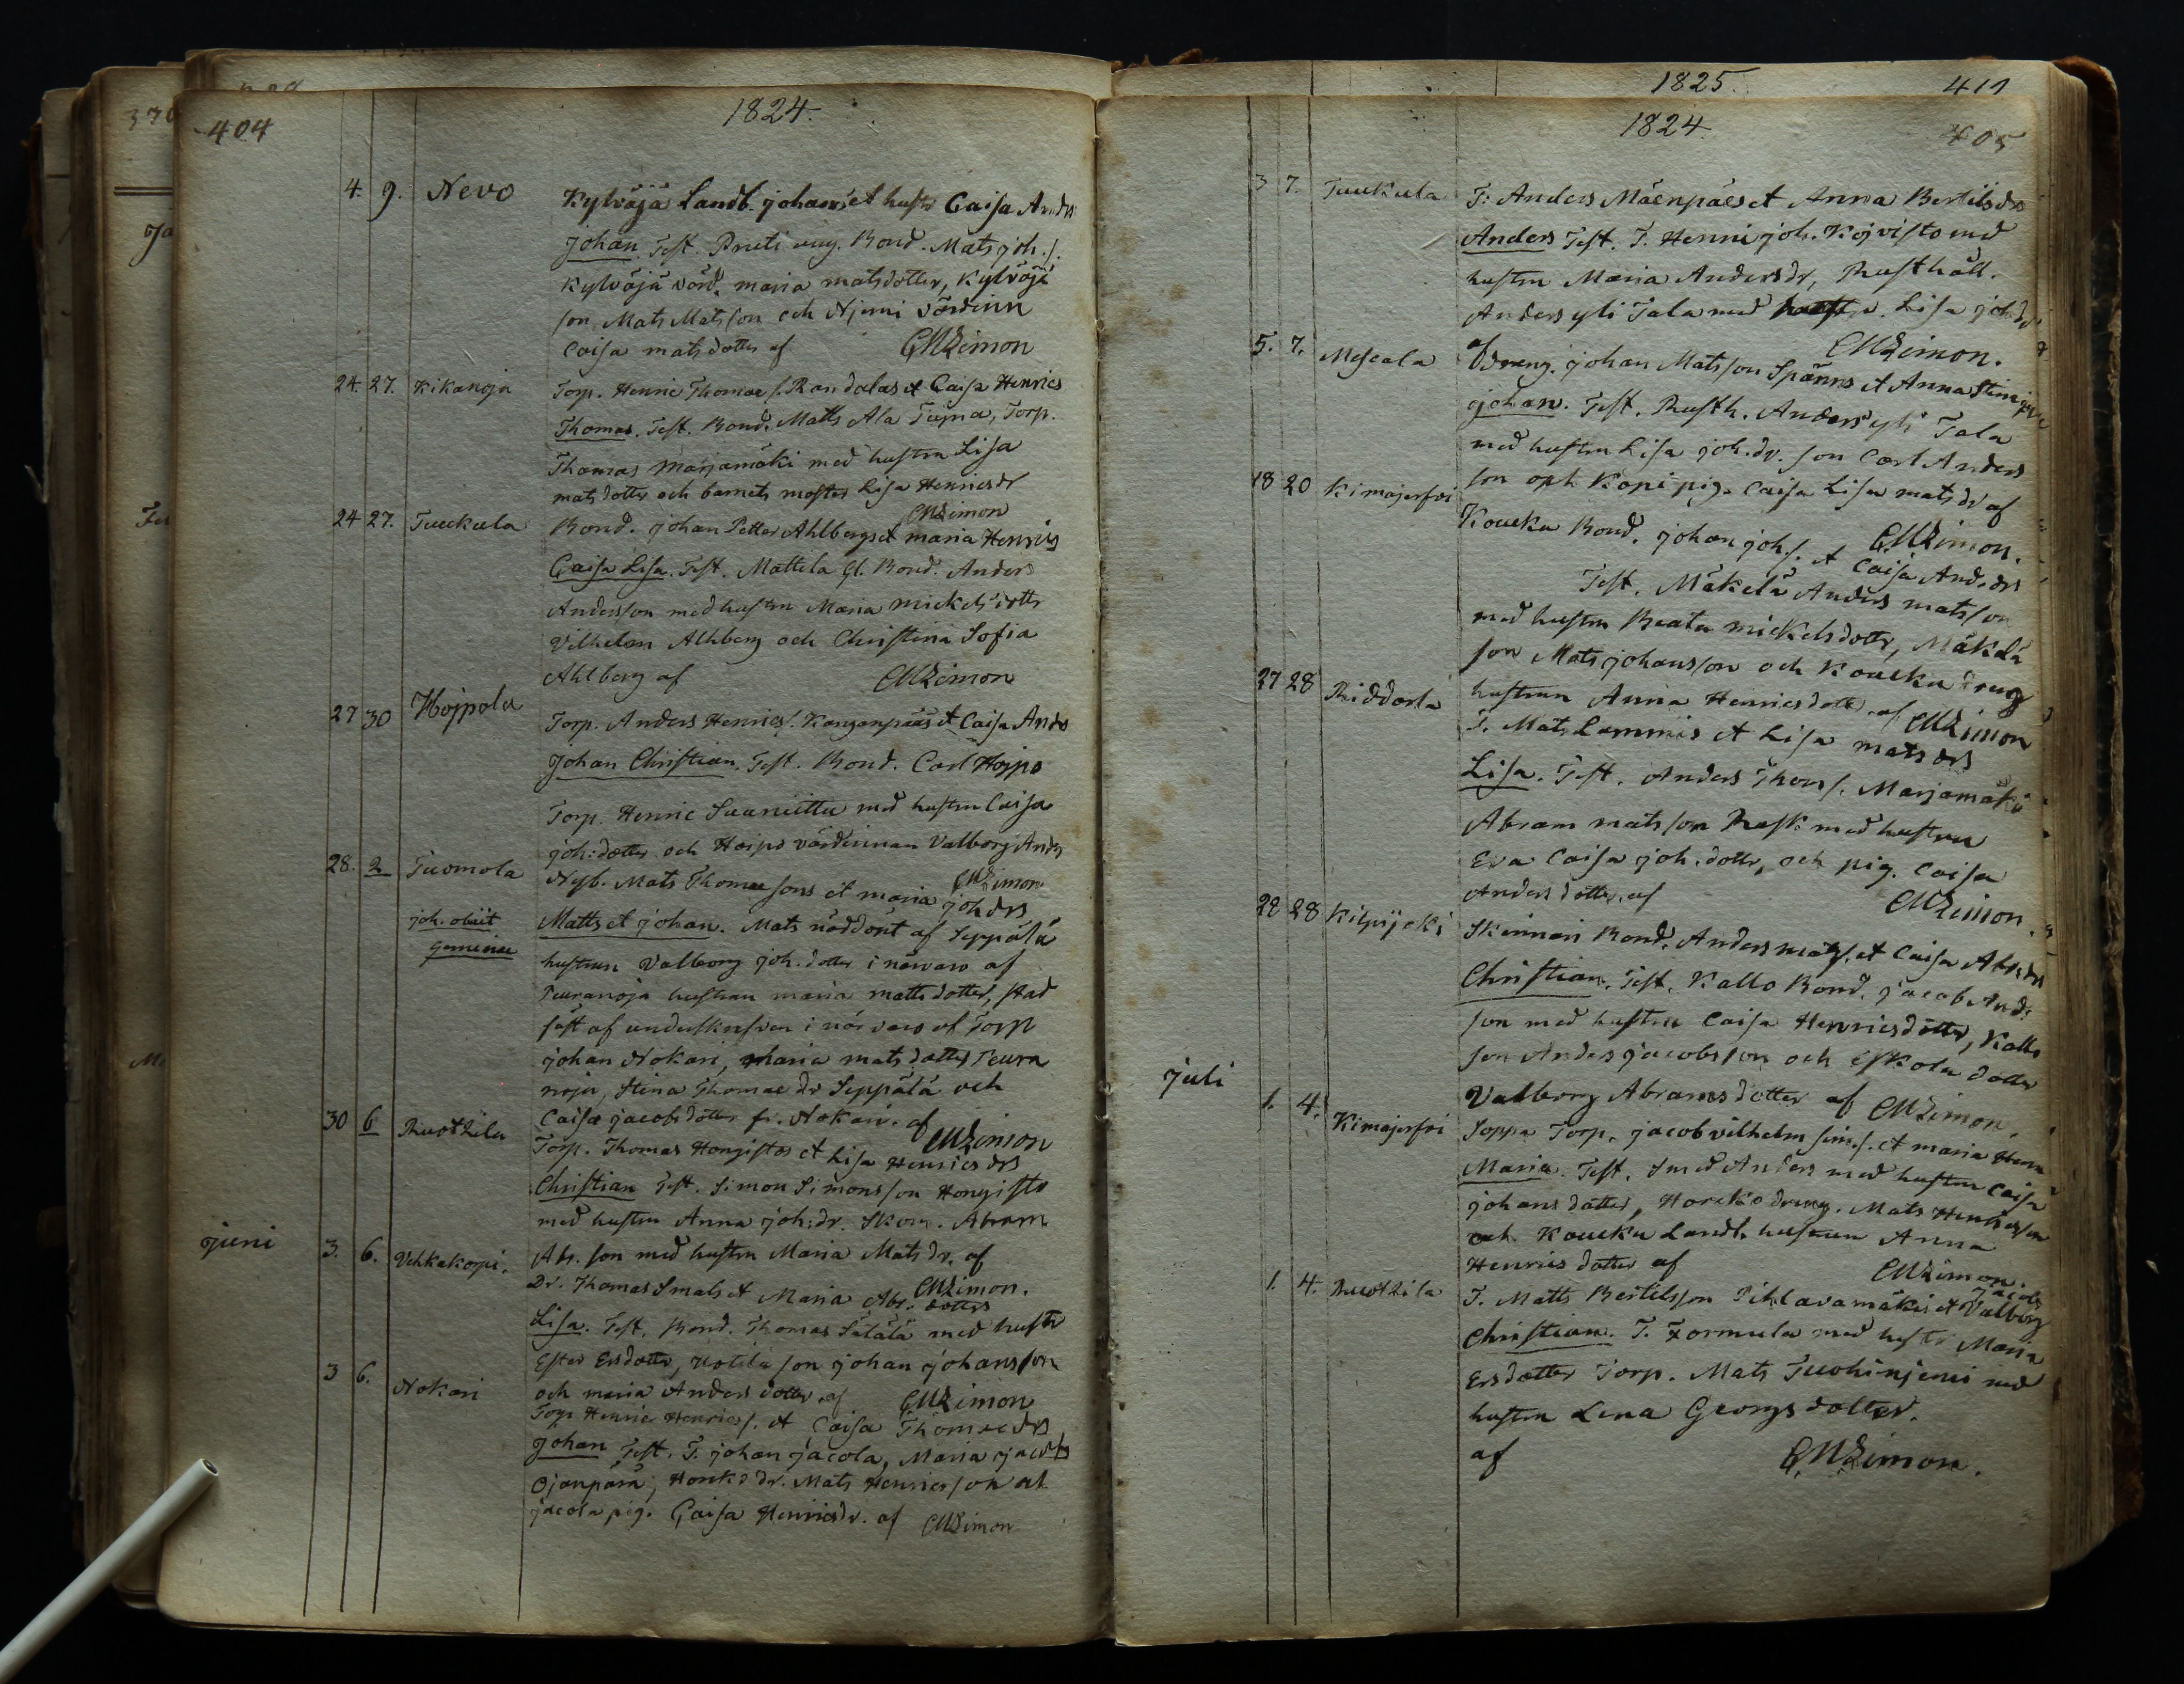 404
1824.
4. 9. Nevo
Kylväjä Landb. johans et hustr Caisa Anders
Johan. Test. Pruti ung. Bond. Mats joh. s.
Kylväjä värd. maria matsdotter, Kylväjä
son Mats Matsson och Njemi värdinn
Caisa matsdotter af CMLimon
24. 27. Kikanoja
Torp. Henric Thomae s. Randalas et Caisa Henrics
Thomas. Test. Bond. Matts Ala Teema, Torp.
Thomas Marjamäki med hustru Lisa
matsdotter och barnets moster Lisa Henricsdr
CMLimon
24 27. Tuukula
Bond. johan Petter Ahlbergs et maria Henrics
Caisa Lisa. Test. Mattila Gl. Bond. Anders
Andersson med hustru Maria mickelsdottr
Vilhelm Ahlberg och Christina Sofia
Ahlberg af CMLimon
27 30 Hojpola
Torp. Anders Henrics. Kangenpääs et Caisa Anders
Johan Christian. Test. Bond. Carl Hojpo
Torp. Henric Suaniittu med hustru Caisa
joh:dotter och Hoipo värdinnan Valborg Anders
CMLimon
28. 2 Tuomola
Nyb. Mats Thomae sons et maria joh drs
joh. obiit
Gemina
Matts et johan. Mats nöddöpt af Seppälä
hustrun Valborg joh. dotter i närvaro af
Peuranoja hustrun maria mattsdotter, stad
fäst af underskrifven i närvaro af Torp
johan Nokari, maria matsdotter Peura
noja, Stina Thomae dr Seppälä och
Caisa jacobsdotter fr. Nokari. af CMLimon
30 6 Ruothila
Torp. Thomas Hongistos et Lisa Henrics drs
Christian Test. Simon Simonsson Hongisto
med hustru Anna joh:dr. Skom. Abram
Abr. son med hustru Maria Mats dr. af
CMLimon.
juni 3. 6. Vehkakorpi.
Dr. Thomas Smals et Maria Abr. dotters
Lisa. Test. Bond. Thomas Sälälä med hustr
Ester Ersdotter, Kotila son johan johansson
och maria Andersdotter af CMLimon
3 6. Nokari
Torp Henric Henrics s. et Caisa Thomae drs
Johan Test. T. johan jacola, Maria jacobs
Ojanperä, Horkko dr. Mats Henricsson och
jacola pig. Caisa Henricsdr. af CMLimon
1825. 411
1824. 405
3 7. Tuukula
T: Anders Mäenpäes et Anna Bertils drs
Anders Test. T. Henric joh. Kojvisto med
hustru Maria Andersdr, Rusthåll.
Anders yli Tala med hustru. Lisa joh dr
af CMLimon.
5. 7. Mescala
Dreng. johan Matsson Spänns et Anna Stina
Johan. Test. Rusth. Anders yli Tala
med hustru Lisa joh. dr. son Carl Anders
son och Kopi pig. Caisa Lisa mats dr af
CMLimon.
18 20 Kimajerfvi
Koucku Bond. johan joh. s. et Caisa And. drs
Test. Mäkelä Anders matsson
med hustru Beata mickelsdottr, Mäkelä
son Mats johansson och Koucku dreng
hustrun Anna Henricsdotter af CMLimon
27 28 Riddarla
T. Mats Lammis et Lisa mats drs
Lisa. Test. Anders Thom s. Marjamäki
Abram matsson Rask med hustrun
Eva Caisa joh. dotter, och pig. Caisa
Andersdotter. af CMLimon.
28 28 Kilpijoki
Skinnari Bond. Anders mats s. et Caisa Abr. drs
Christian. Test. Kallo Bond. jacob And.
son med hustru Caisa Henricsdotter, Kallo
son Anders jacobsson och Eskola dotter
Valborg Abramsdotter af CMLimon.
juli
1. 4. Kimajerfvi
Soppa Torp. jacob vilhelm sim. s. et maria Henr
Maria. Test. Smed Anders med hustru Caisa
johansdotter, Horcko dreng. Mats Henricsson
och Koucku Landb. hustrun Anna
Henricsdotter af CMLimon.
1. 4. Ruothila
T. Matts Bertilsson Pihlavamäkis et Valborg Jacobs
Christian. T. Formula med hustr Maria
Ersdotter Torp. Mats Tuohinjemi med
hustru Lena Georgsdotter.
af CMLimon.